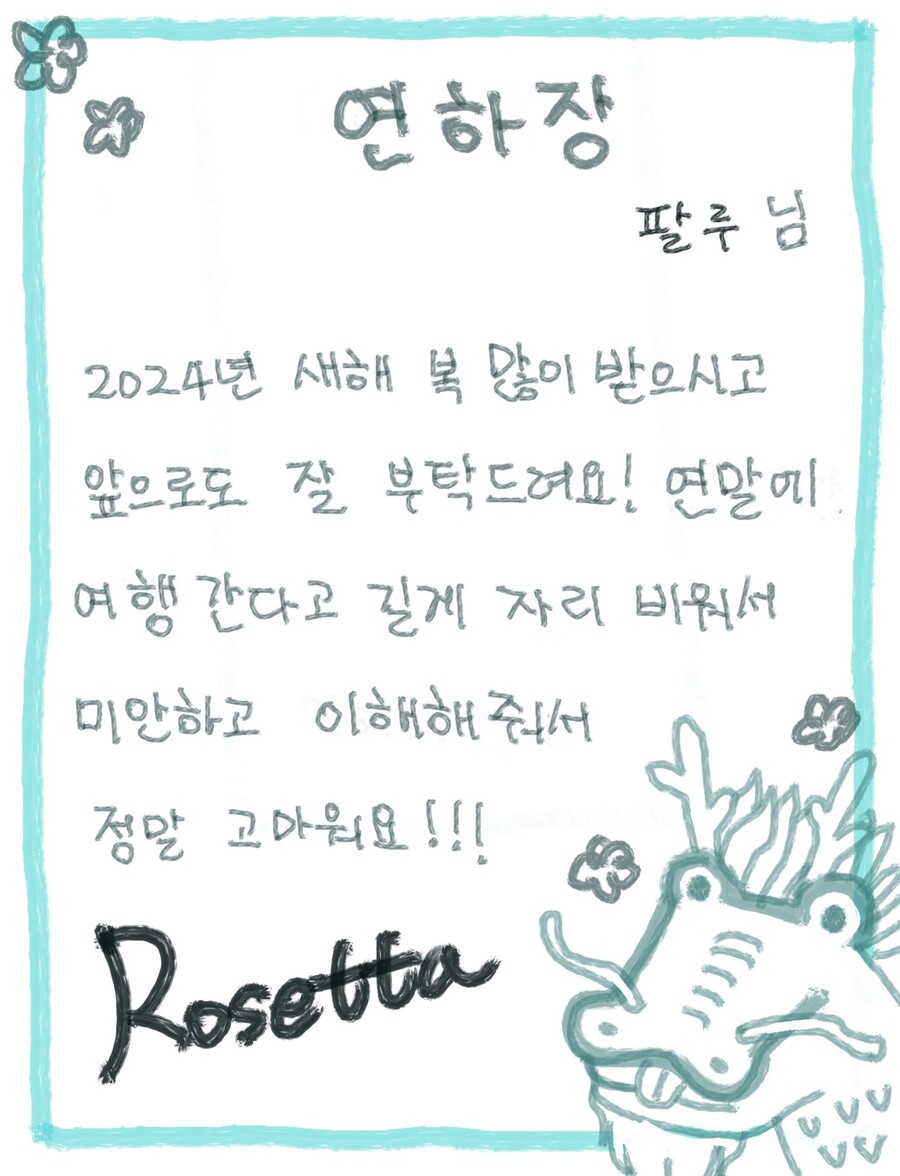 연하장
팔루 님
2024년 새해 복 많이 받으시고
앞으로도 잘 부탁드려요! 연말에
여행 간다고 길게 자리 비워서
미안하고 이해해줘서
정말 고마워요!!!
Rosetta